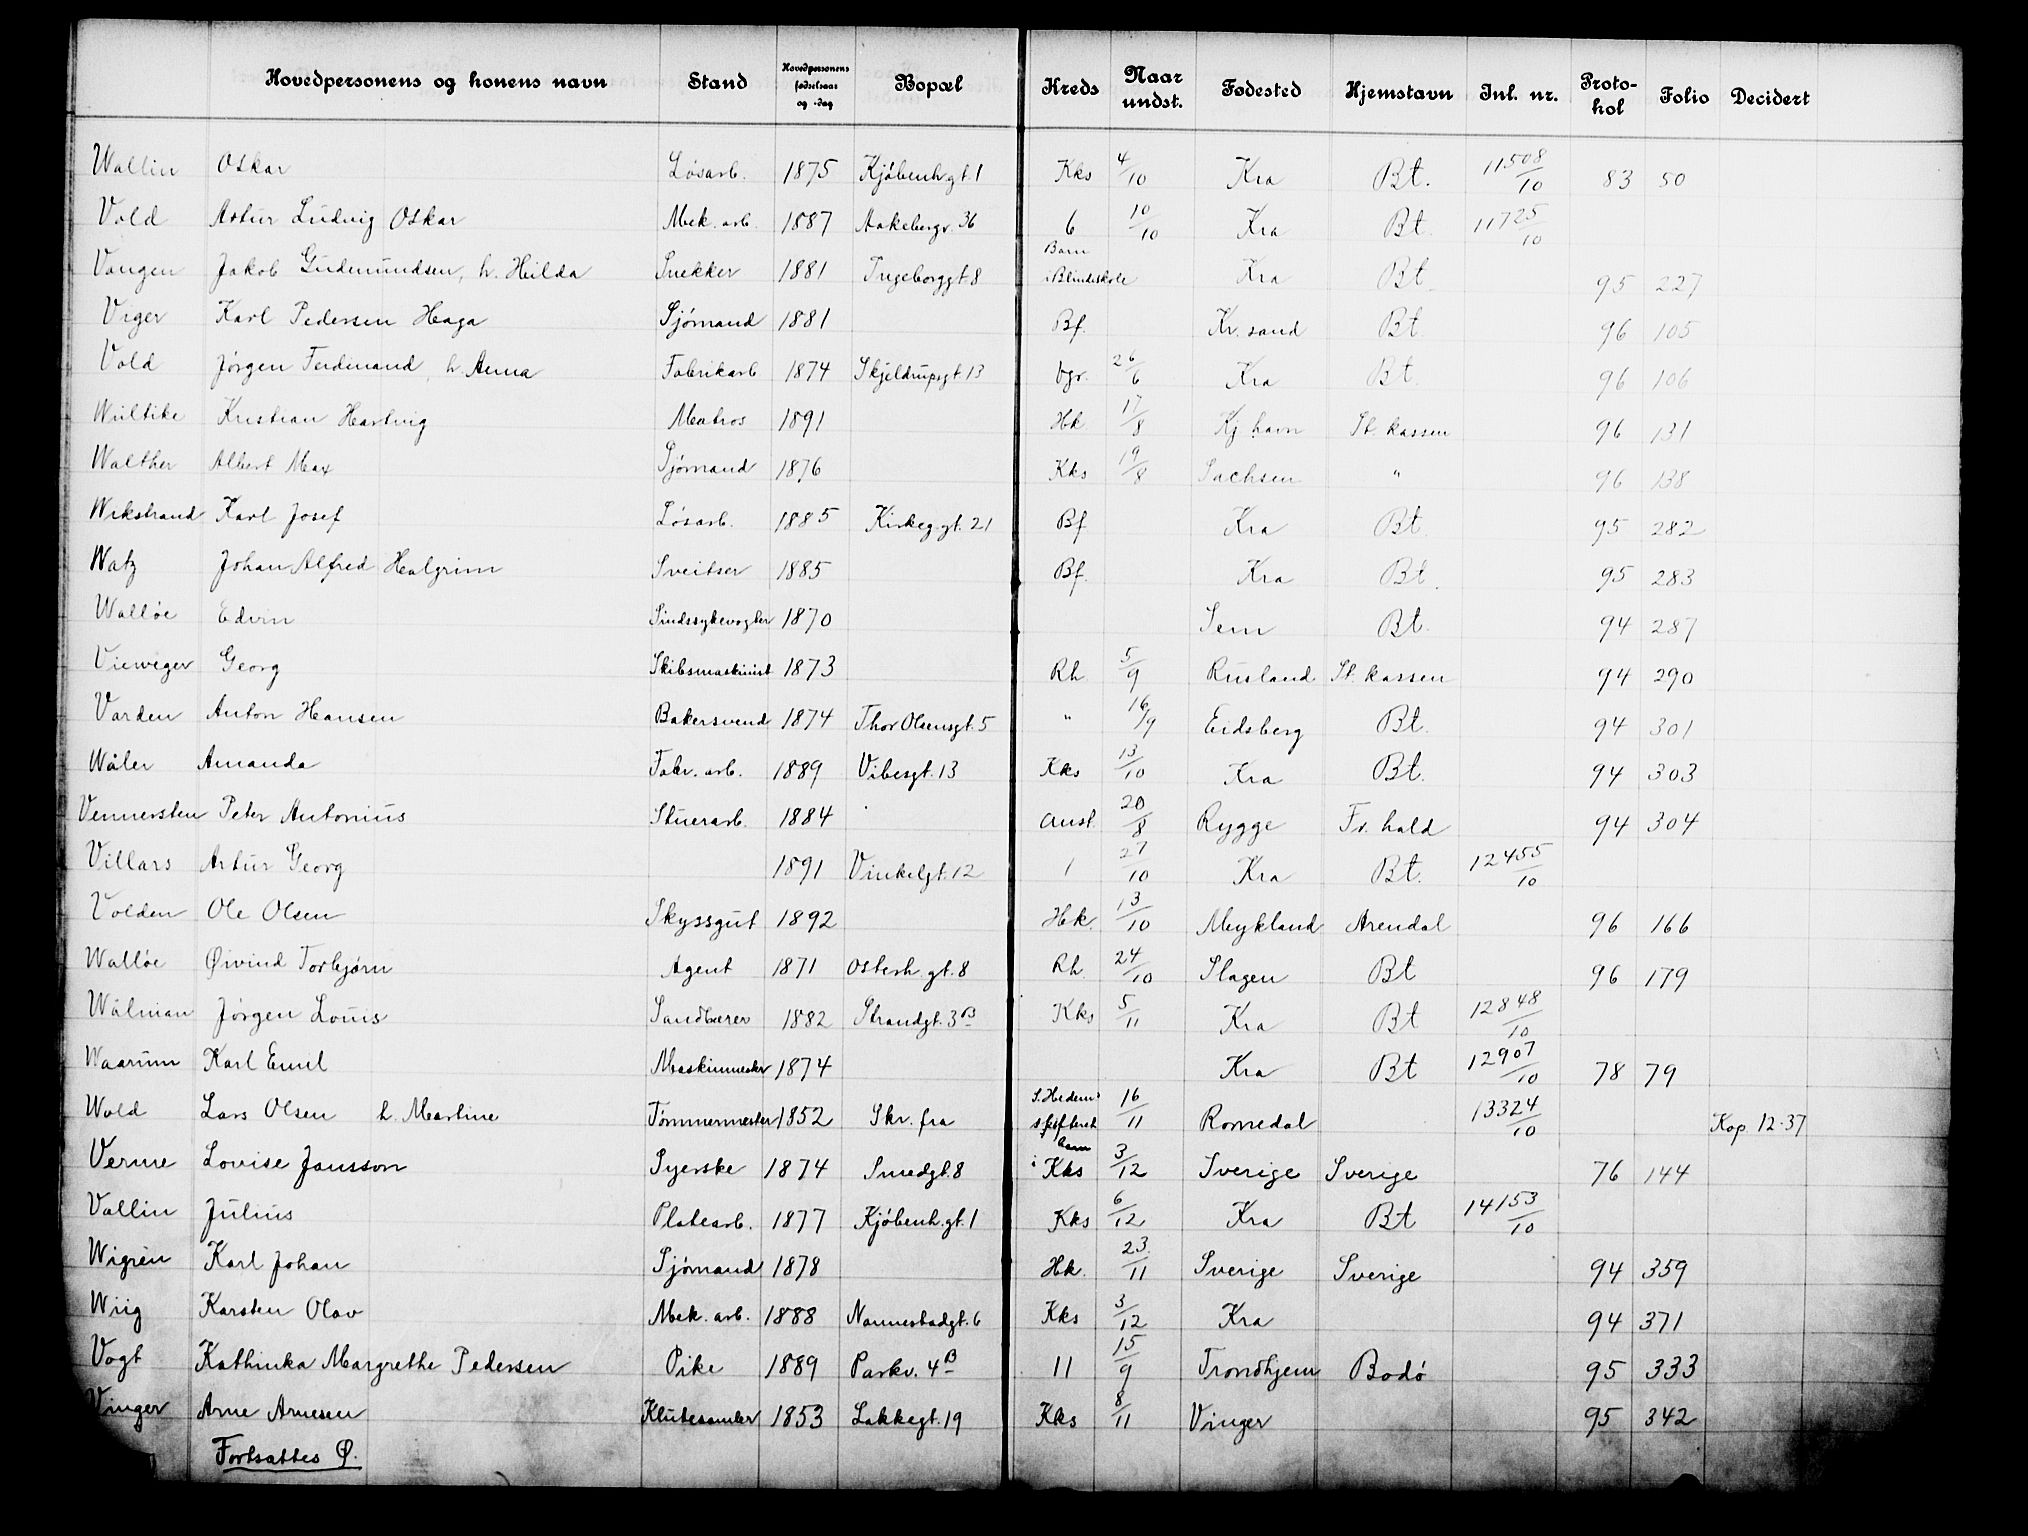 Hovedpersonens og konens navn Stand Hovedpersonens fødselsaar og -dag Bopæl Kreds Naar undst. Fødested Hjemstavn Inl. nr. Protokol Folio Decidert
Wallin Oskar Løsarb. 1875 Kjøbenh.gt. 1 Kks 4/10 Kra Bt. 11508/10 83 50
Vold Artur Ludvig Oskar Mek. arb. 1887 Aakebergv. 36 6 10/10 Kra Bt. 11725/10
Vangen Jakob Gudmundsen, h. Hilda Snekker 1881 Ingeborggt. 8 Barn i Blindeskole Kra Bt. 95 227
Viger Karl Pedersen Haga Sjømand 1881 Bf. Kr.sand Bt. 96 105
Vold Jørgen Ferdinand, h. Anna Fabrikarb 1874 Skjeldrupsgt. 13 Vgr. 26/6 Kra Bt. 96 106
Kristian Hartvig Matros 1891 Hk 17/8 Kj.havn St. kassen 96 131
Walther Albert Max Sjømand 1876 Kks 19/8 Sachsen " 96 138
Wikstrand Karl Josef Løsarb. 1885 Kirkeg.gt. 21 Bf Kra Bt. 95 282
Watz Johan Alfred Halgrim Sveitser 1885 Bf. Kra Bt. 95 283
Walløe Edvin Sindssykevogter 1870 Sem Bt. 94 287
Vieweger Georg Skibsmaskinist 1873 Rh 5/9 Rusland St. kassen 94 290
Varden Anton Hansen Bakersvend 1874 Thor Olsensgt. 5 " 16/9 Eidsberg Bt. 94 301
Wåler Amanda Fabr. arb. 1889 Vibesgt. 13 Kks 13/10 Kra Bt. 94 303
Vennersten Peter Antonius Stuerarb. 1884 Aust. 20/8 Rygge Fr. hald 94 304
Villars Artur Georg 1891 Vinkelgt. 12 1 27/10 Kra Bt. 12455/10
Volden Ole Olsen Skyssgut 1892 Hk. 13/10 Mykland Arendal 96 166
Walløe Øivind Torbjørn Agent 1871 Osterh.gt. 8 Rh. 24/10 Slagen Bt 96 179
Wålman Jørgen Louis Sandkører 1882 Strandgt. 3B Kks 5/11 Kra Bt 12848/10
Waarum Karl Emil Maskinmester 1874 Kra Bt 12907/10 78 79
Wold Lars Olsen h. Martine Tømmermester 1852 Skr. fra S. Hedem. 16/11 Romedal 13324/10 Kop. 12-37
Verme Lovise Jansson Syerske 1874 Smedgt. 8 barn i Kks 3/12 Sverige Sverige 76 144
Vallin Julius Platearb. 1877 Kjøbenh.gt. 1 Kks 6/12 Kra Bt 14153/10
Wigrén Karl Johan Sjømand 1878 Hk. 23/11 Sverige Sverige 94 359
Wiig Karsten Olav Mek. arb. 1888 Nannestadgt. 6 Kks 3/12 Kra 94 371
Vogt Kathinka Margrethe Pedersen Pike 1889 Parkv. 4B 11 15/9 Trondhjem Bodø 95 333
Vinger Arne Arnesen Klutesamler 1853 Lakkegt. 19 Kks 8/11 Vinger 95 342
Fortsattes Ø.